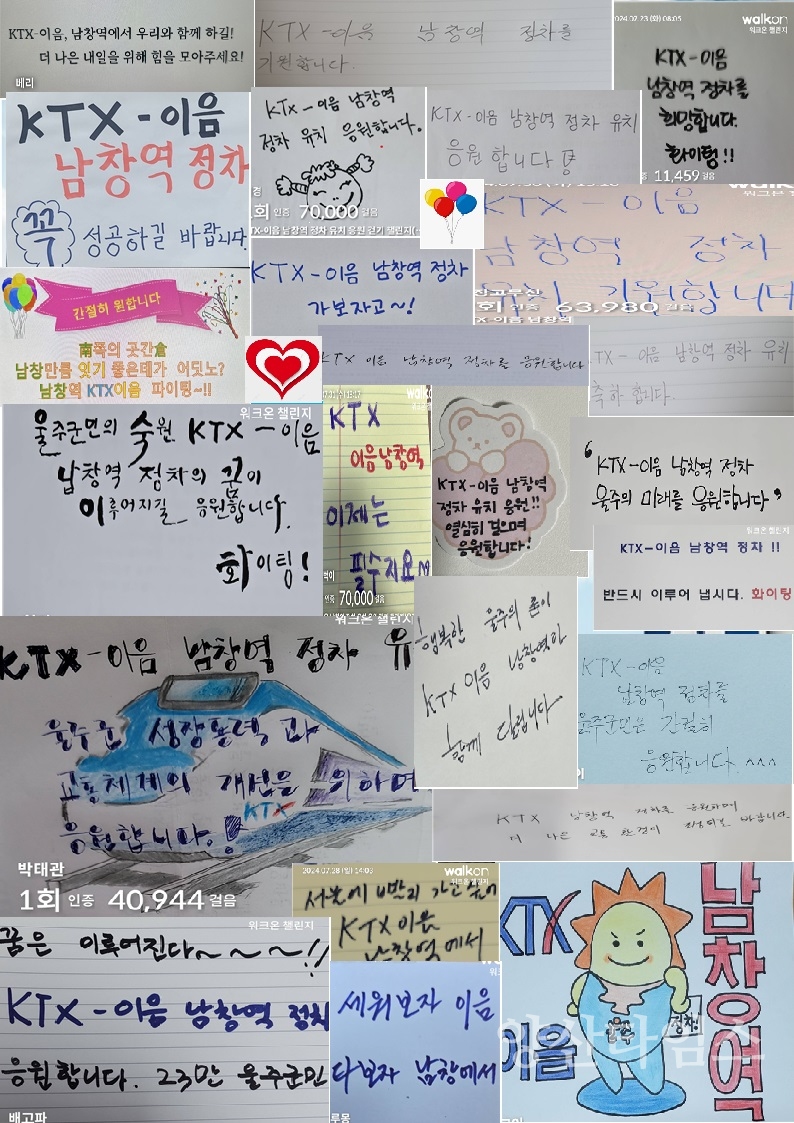 KTX-이음, 남창역에서 우리와 함께 하길!
더 나은 내일을 위해 힘을 모아주세요!
베리
KTX-이음 남창역 정차를
기원합니다.
2024.07.23 (화) 08:05
walkon
워크온 챌린지
KTX-이음
남창역 정차를
희망합니다.
화이팅!!
11,459 걸음
KTX-이음
남창역 정차
꼭 성공하길 바랍니다
KTX-이음 남창역
정차 유치 응원합니다.
1회 인증 70,000 걸음
KTX-이음 남창역 정차 유치 응원 걷기 챌린지
KTX-이음 남창역 정차 유치
응원합니다
KTX-이음
남창역 정차
유치 기원합니다
63,980 걸음
KTX-이음 남창역 정차
가보자고~!
간절히 원합니다
南쪽의 곳간倉
남창만큼 엿기 좋은데가 어딧노?
남창역 KTX이음 파이팅~!!
KTX 이음 남창역 정차를 응원합니다
KTX-이음 남창역 정차 유치
축하합니다.
워크온 챌린지
울주군민의 숙원 KTX-이음
남창역 정차의 꿈이
이루어지길 응원합니다.
화이팅!
KTX
이음남창역
이제는
필수지요
인증 70,000 걸음
워크온 챌린지
KTX-이음 남창역
정차 유치 응원!!
열심히 걸으며
응원합니다!
KTX-이음 남창역 정차
울주의 미래를 응원합니다
워크온 챌린지
KTX-이음 남창역 정차 !!
반드시 이루어 냅시다. 화이팅
행복한 울주의
KTX 이음 남창역과
함께 달립니다
KTX-이음
남창역 정차를
울주군민은 간절히
응원합니다. ^^^
KTX-이음 남창역 정차 유
울주군 성장동력과
교통체계의 개선을 위하여
응원합니다!
KTX
박태관
1회 인증 40,944 걸음
KTX 남창역 정차를 응원하며
더 나은 교통 환경이 되길 바랍니다
2024.07.28 (일) 14:03
walkon
워크온 챌린지
KTX 이음
남창역에서
워크온 챌린지
꿈은 이루어진다~~~~!!
KTX-이음 남창역 정차
응원합니다. 23만 울주군민
배고파
세워보자 이음
다보자 남창에서
루몽
KTX
이음
남창역
울주
정차!
양산타임스